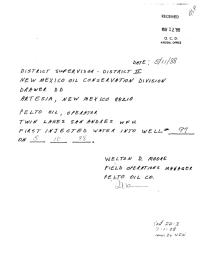 RECEIVED
O. C. D.
ARTESIA, OFFICE
DATE: 5/11/88
DISTRICT SUPERVISOR - DISTRICT II
NEW MEXICO OIL CONSERVATION DIVISION
DRAWER DD
ARTESIA, NEW MEXICO 88210
PELTO OIL, OPERATOR
TWIN LAKES SAN ANDRES UNIT
FIRST INJECTED WATER INTO WELL # 99
ON 5 10 88.
WELTON D. MOORE
FIELD OPERATIONS MANAGER
PELTO OIL CO.